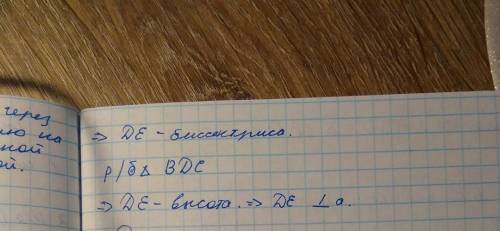 через
ию на
ной
ой.
⇒ DE - биссектриса.
р/б Δ BDC
⇒ DE - высота. ⇒ DE ⊥ a.